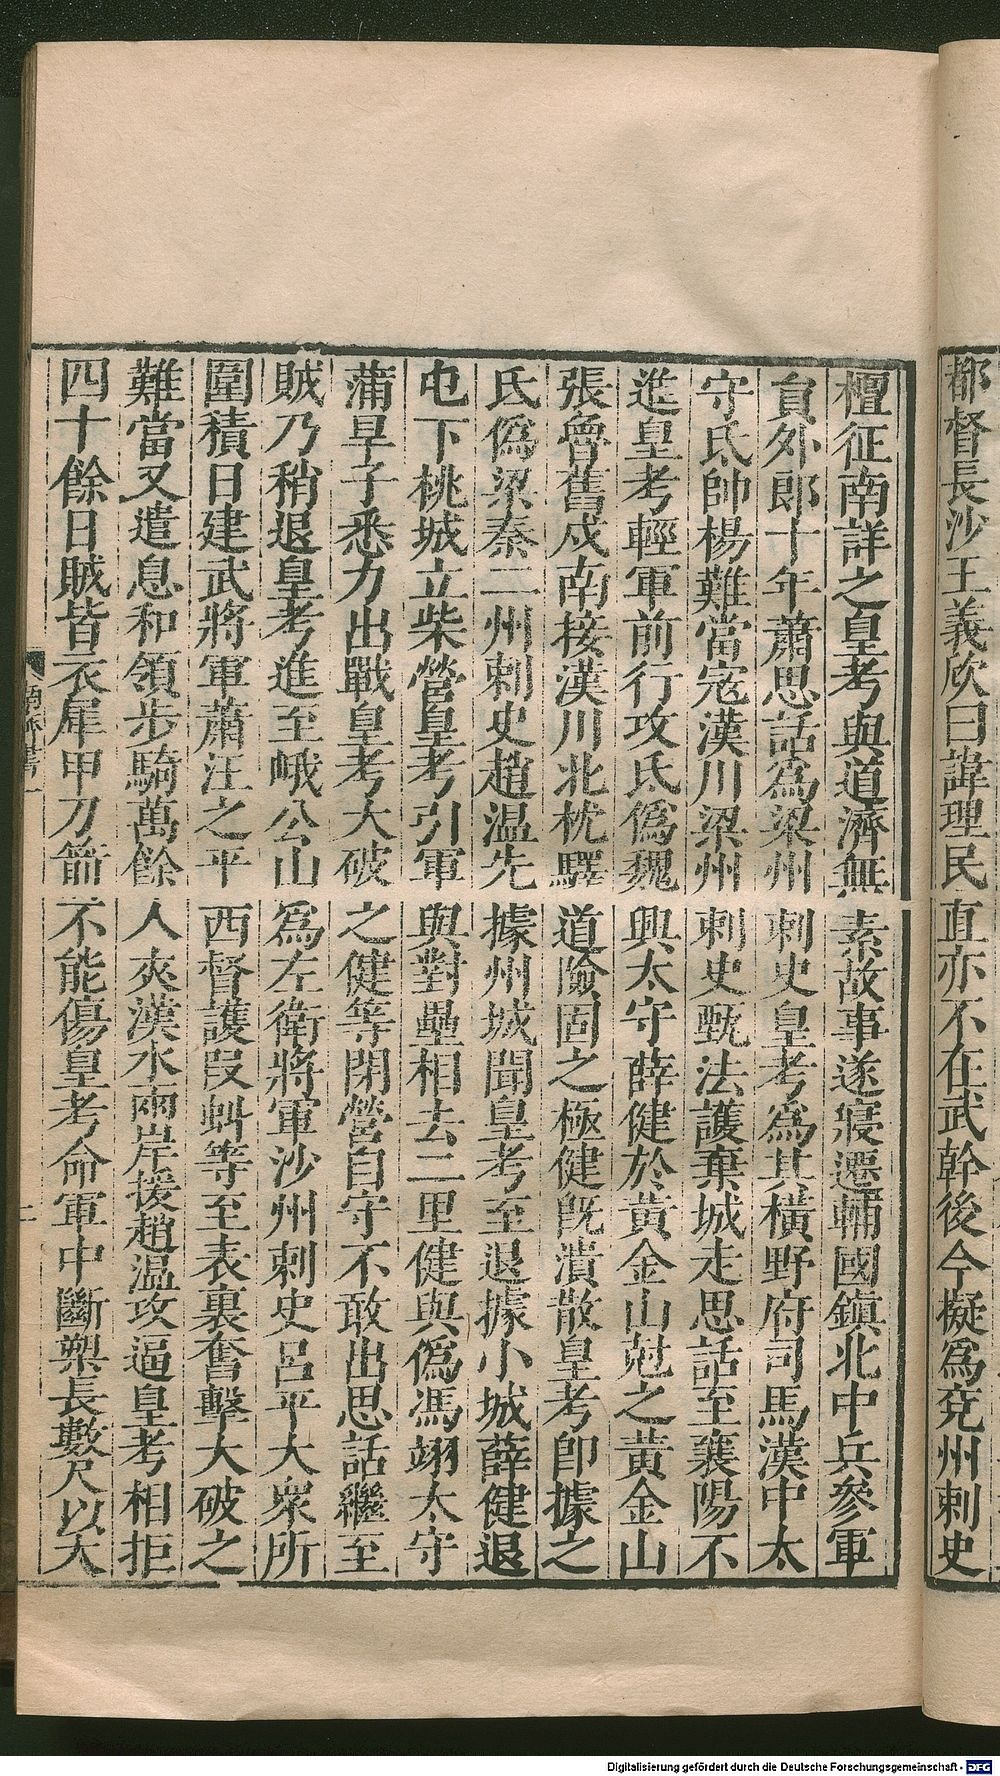 都督長沙王義欣曰諱理民直亦不在武幹後今擬爲兗州刺史
檀征南詳之皇考與道濟無素故事遂寢遷輔國鎮北中兵參軍
員外郎十年蕭思話爲梁州刺史皇考爲其橫野府司馬漢中太
守氐帥楊難當寇漢川梁州刺史甄法護棄城走思話至襄陽不
進皇考輕軍前行攻氐僞魏興太守薛健於黃金山尅之黃金山
張魯舊戍南接漢川北枕驛道險固之極健旣潰散皇考卽據之
氐僞梁秦二州刺史趙温先據州城聞皇考至退據小城薛健退
屯下桃城立柴營皇考引軍與對壘相去二里健與僞馮翊太守
蒲早子悉力出戰皇考大破之健等閉營自守不敢出思話繼至
賊乃稍退皇考進至峨公山爲左衛將軍沙州刺史呂平大衆所
圍積日建武將軍蕭汪之平西督護段虬等至表裏奮擊大破之
難當又遣息和領步騎萬餘人夾漢水兩岸援趙温攻逼皇考相拒
四十餘日賊皆衣犀甲刀箭不能傷皇考命軍中斷槊長數尺以大
二
Digitalisierung gefördert durch die Deutsche Forschungsgemeinschaft - DFG